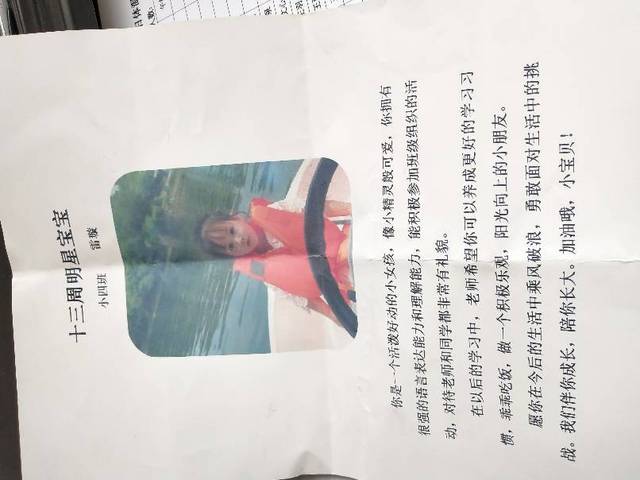 十三周明星宝宝
小四班 雷璇
你是一个活泼好动的小女孩，像小精灵般可爱，你拥有
很强的语言表达能力和理解能力，能积极参加班级组织的活
动，对待老师和同学都非常有礼貌。
在以后的学习中，老师希望你可以养成更好的学习习
惯，乖乖吃饭，做一个积极乐观，阳光向上的小朋友。
愿你在今后的生活中乘风破浪，勇敢面对生活中的挑
战。我们伴你成长，陪你长大。加油哦，小宝贝！